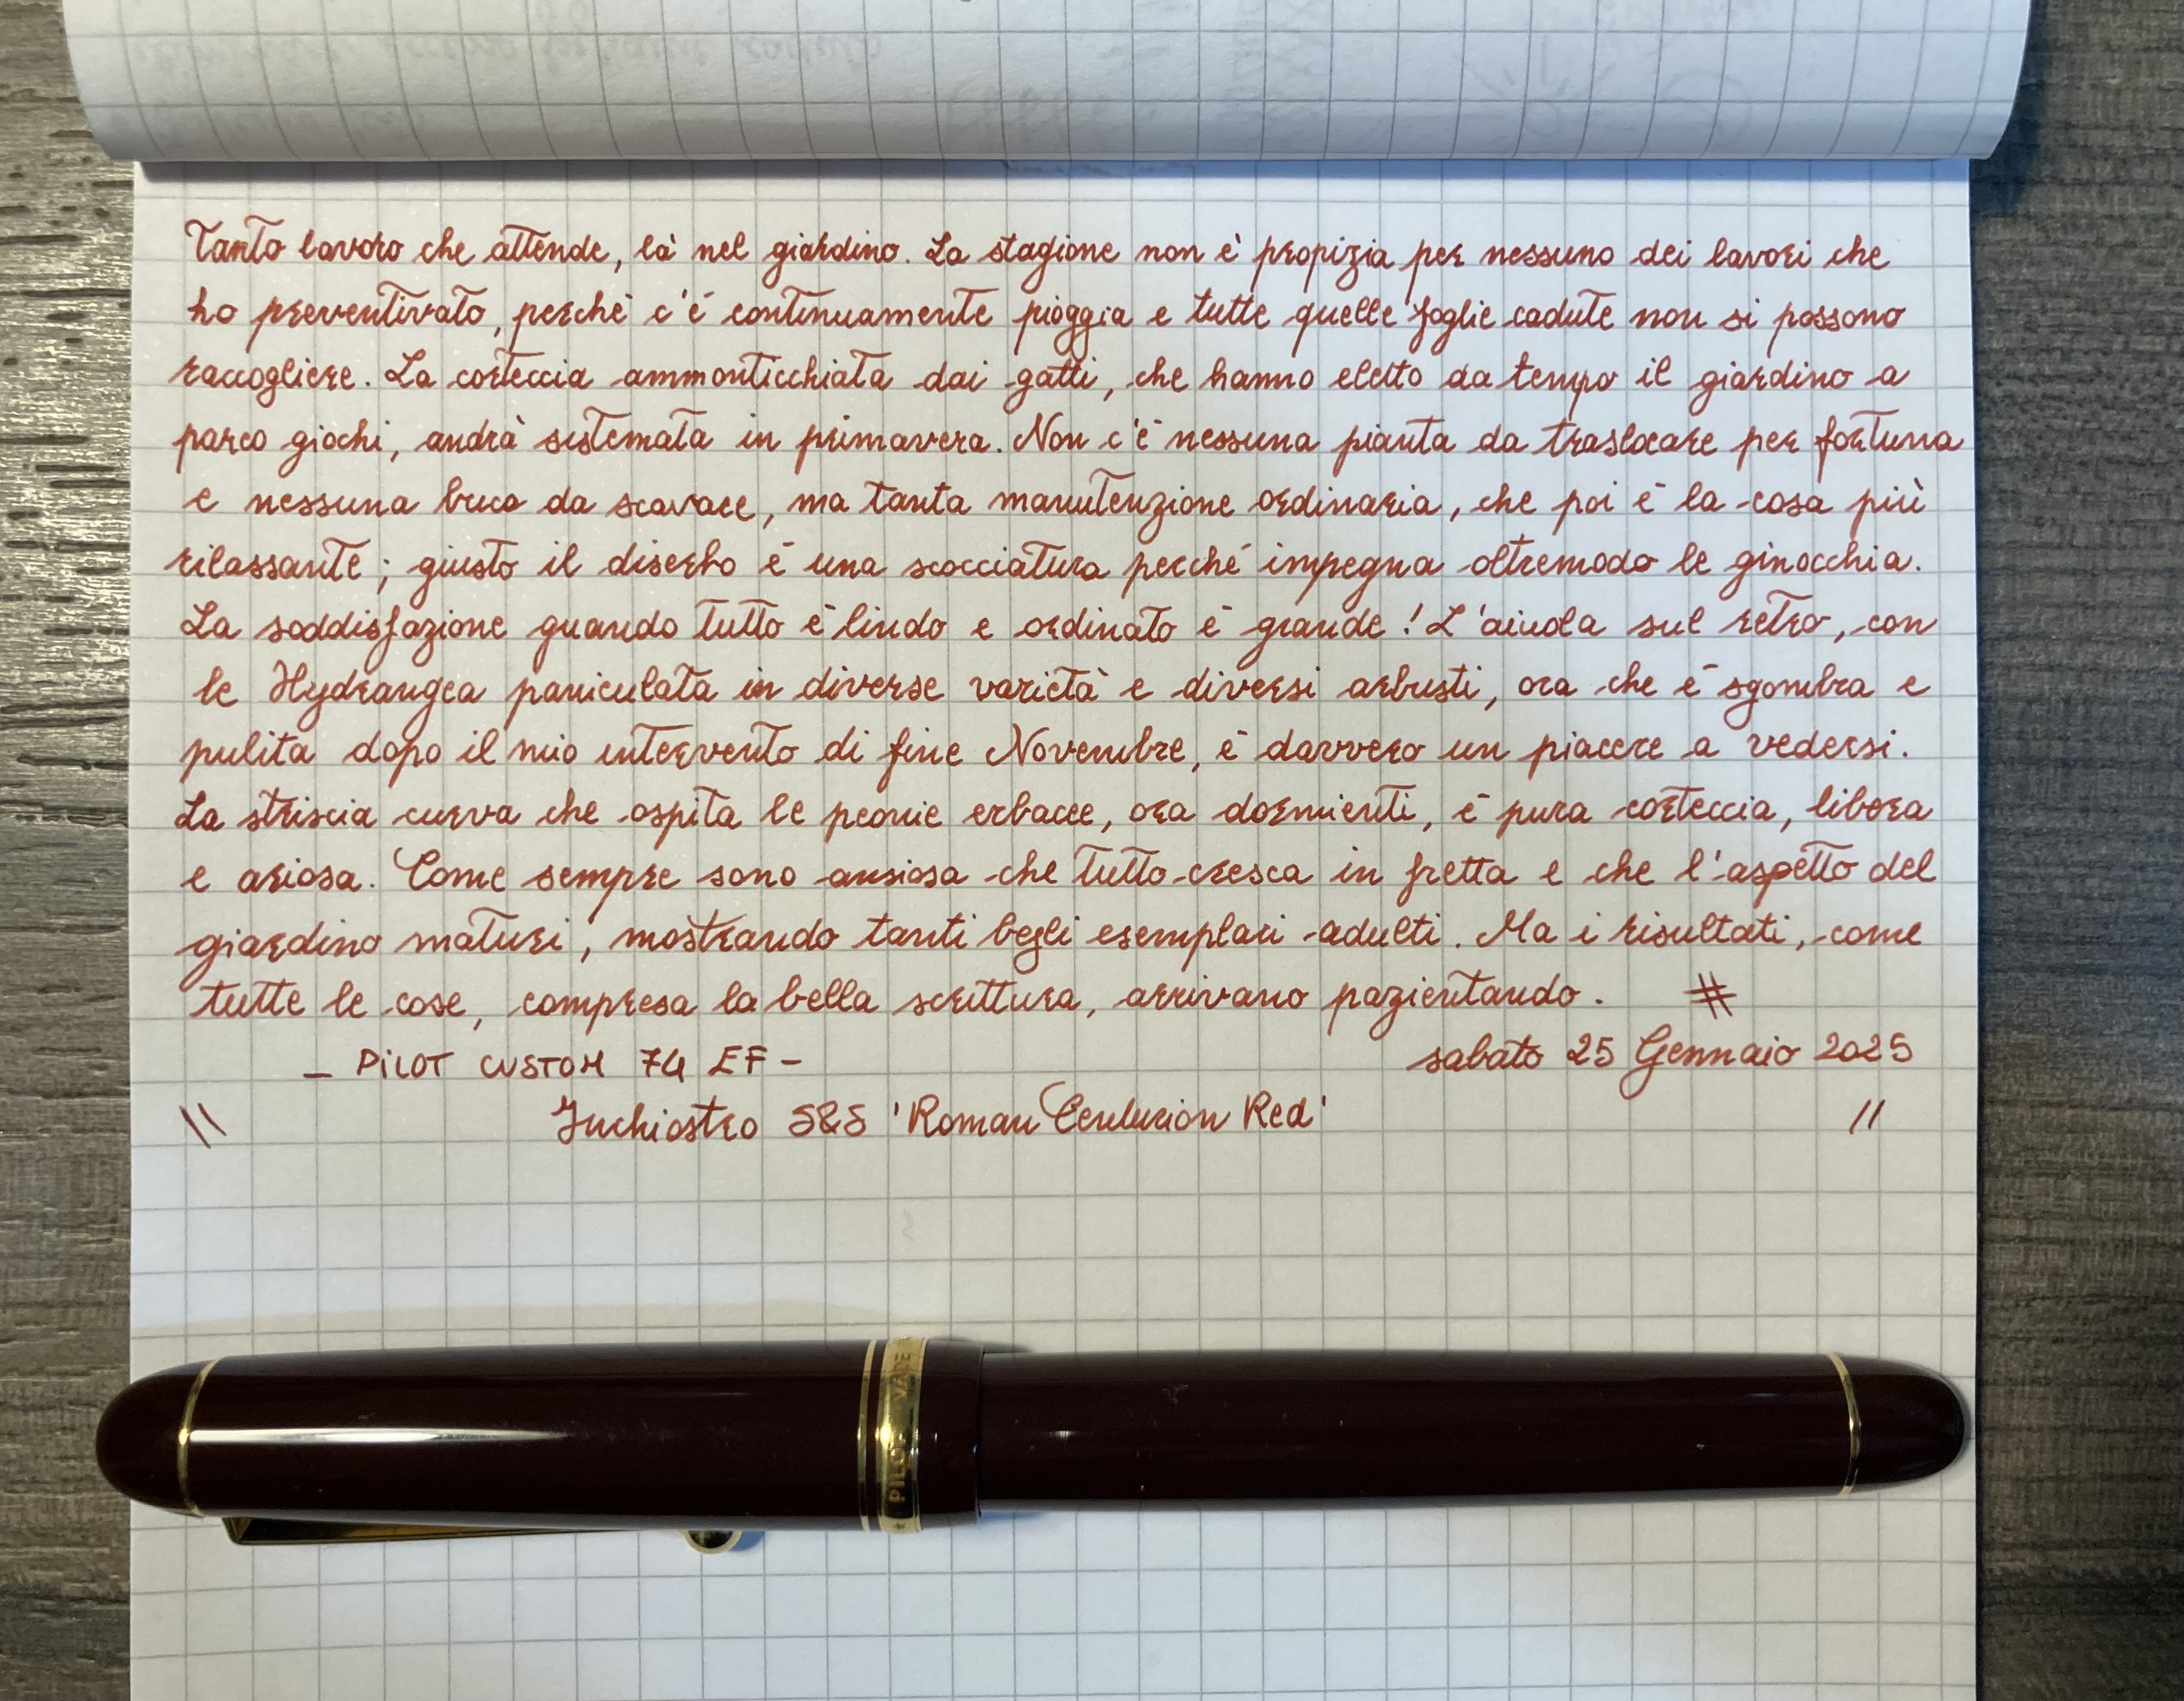 Tanto lavoro che attende, là nel giardino. La stagione non è propizia per nessuno dei lavori che
ho preventivato, perché c'è continuamente pioggia e tutte quelle foglie cadute non si possono
raccogliere. La corteccia ammonticchiata dai gatti, che hanno eletto da tempo il giardino a
parco giochi, andrà sistemata in primavera. Non c'è nessuna pianta da traslocare per fortuna
e nessuna buca da scavare, ma tanta manutenzione ordinaria, che poi è la cosa più
rilassante; giusto il diserbo è una scocciatura perché impegna oltremodo le ginocchia.
La soddisfazione quando tutto è lindo e ordinato è grande! L'aiuola sul retro, con
le Hydrangea paniculata in diverse varietà e diversi arbusti, ora che è sgombra e
pulita dopo il mio intervento di fine Novembre, è davvero un piacere a vedersi.
La striscia curva che ospita le peonie erbacee, ora dormienti, è pura corteccia, libera
e ariosa. Come sempre sono ansiosa che tutto cresca in fretta e che l'aspetto del
giardino maturi, mostrando tanti begli esemplari adulti. Ma i risultati, come
tutte le cose, compresa la bella scrittura, arrivano pazientando. #
– PILOT CUSTOM 74 EF – sabato 25 Gennaio 2025
\\ Inchiostro S&S 'Roman Centurion Red' //
* PILOT VADE